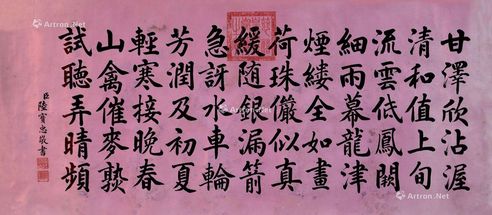 甘澤欣沾渥
清和值上旬
流雲低鳳闕
細雨幕龍津
煙縷全如畫
荷珠儼似真
緩随銀漏箭
急訝水車輪
芳潤及初夏
輕寒接晚春
山禽催麥熟
試聽弄晴頻
臣陸寶忠敬書
Artron.Net
Artron.Net
Artron.Net
Artron.Net